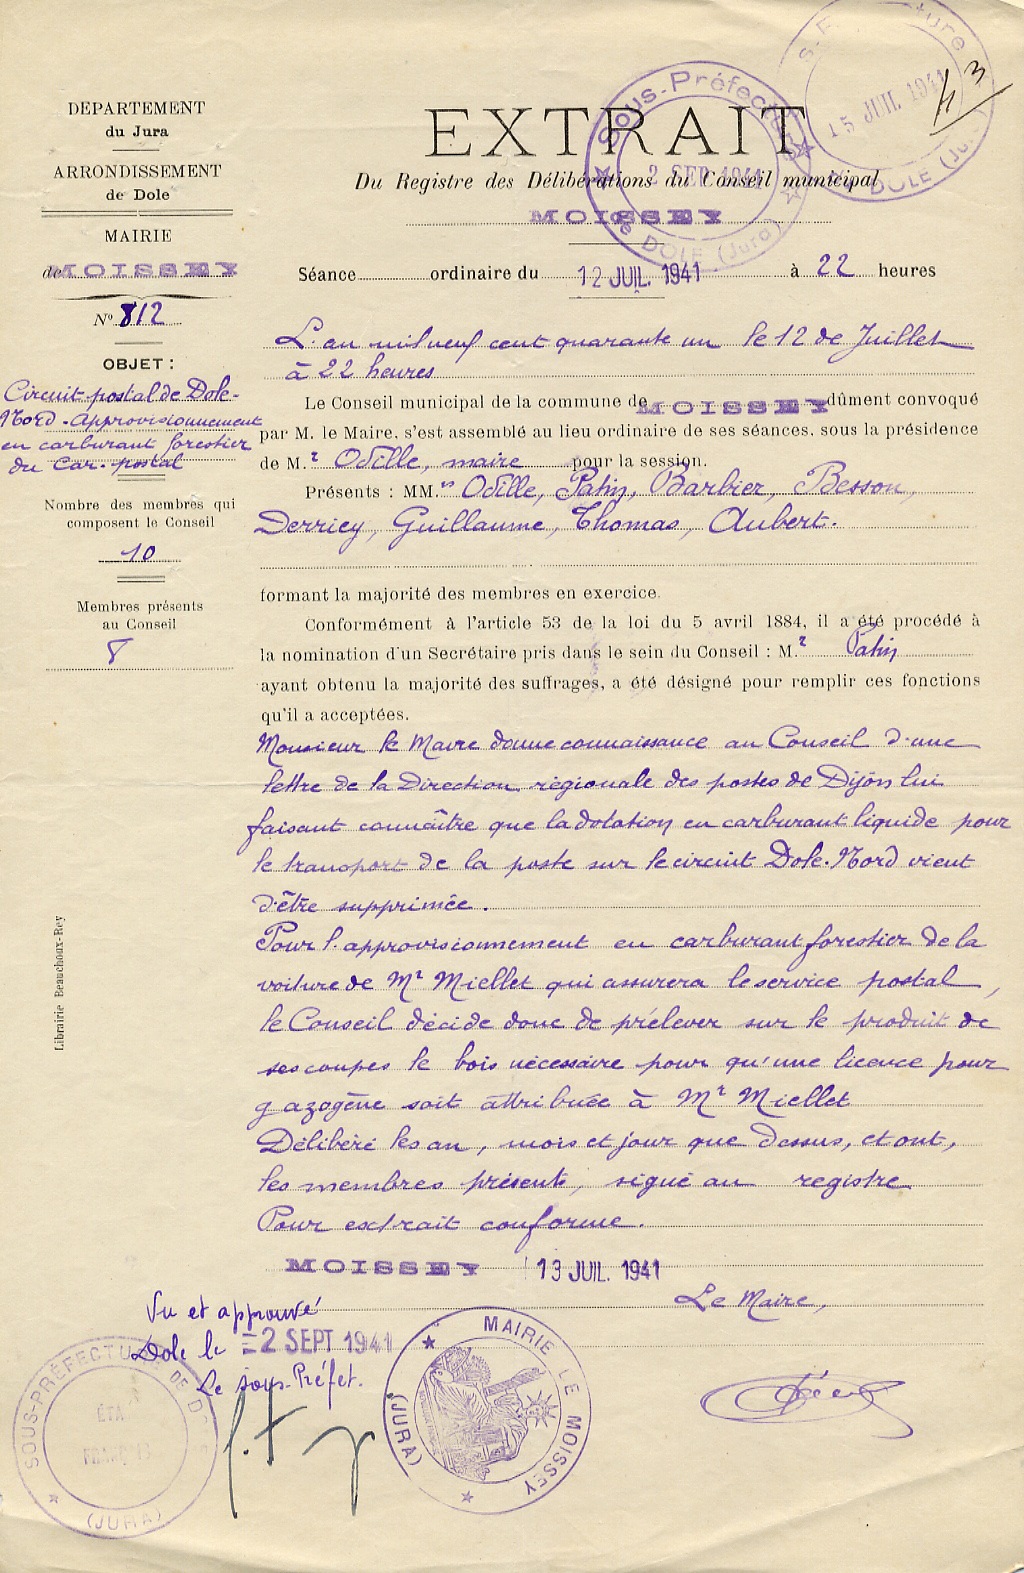 DEPARTEMENT
du Jura
ARRONDISSEMENT
de Dole
MAIRIE
de MOISSEY
N° 812
OBJET :
Circuit postal de Dole-
Nord - Approvisionnement
en carburant forestier
du Car-postal
Nombre des membres qui
composent le Conseil
10
Membres présents
au Conseil
8
Librairie Beauchoux-Rey
EXTRAIT
Du Registre des Délibérations du Conseil municipal
MOISSEY
Sous-Préfecture
2 SEP 1941
de DOLE (Jura)
15 JUIL 1941
DOLE (Jura)
43
Séance ordinaire du 12 JUIL. 1941 à 22 heures
L'an mil neuf cent quarante un le 12 de Juillet
à 22 heures
Le Conseil municipal de la commune de MOISSEY dûment convoqué
par M. le Maire, s'est assemblé au lieu ordinaire de ses séances, sous la présidence
de M.r Odille, maire pour la session.
Présents : MM.rs Odille, Patin, Barbier, Besson,
Derriey, Guillaume, Thomas, Aubert.
formant la majorité des membres en exercice.
Conformément à l'article 53 de la loi du 5 avril 1884, il a été procédé à
la nomination d'un Secrétaire pris dans le sein du Conseil : M.r Patin
ayant obtenu la majorité des suffrages, a été désigné pour remplir ces fonctions
qu'il a acceptées.
Monsieur le Maire donne connaissance au Conseil d'une
lettre de la Direction régionale des postes de Dijon lui
faisant connaître que la dotation en carburant liquide pour
le transport de la poste sur le circuit Dole-Nord vient
d'être supprimée.
Pour l'approvisionnement en carburant forestier de la
voiture de Mr Miellet qui assurera le service postal,
le Conseil décide donc de prélever sur le produit de
ses coupes le bois nécessaire pour qu'une licence pour
gazogène soit attribuée à Mr Miellet
Délibéré les an, mois et jour que dessus, et ont,
les membres présents, signé au registre
Pour extrait conforme.
MOISSEY 13 JUIL. 1941
Le Maire,
Vu et approuvé
Dole le 2 SEPT 1941
Le sous-Préfet.
SOUS-PRÉFECTURE DE DOLE
ÉTAT
FRANÇAIS
(JURA)
MAIRIE DE MOISSEY
(JURA)